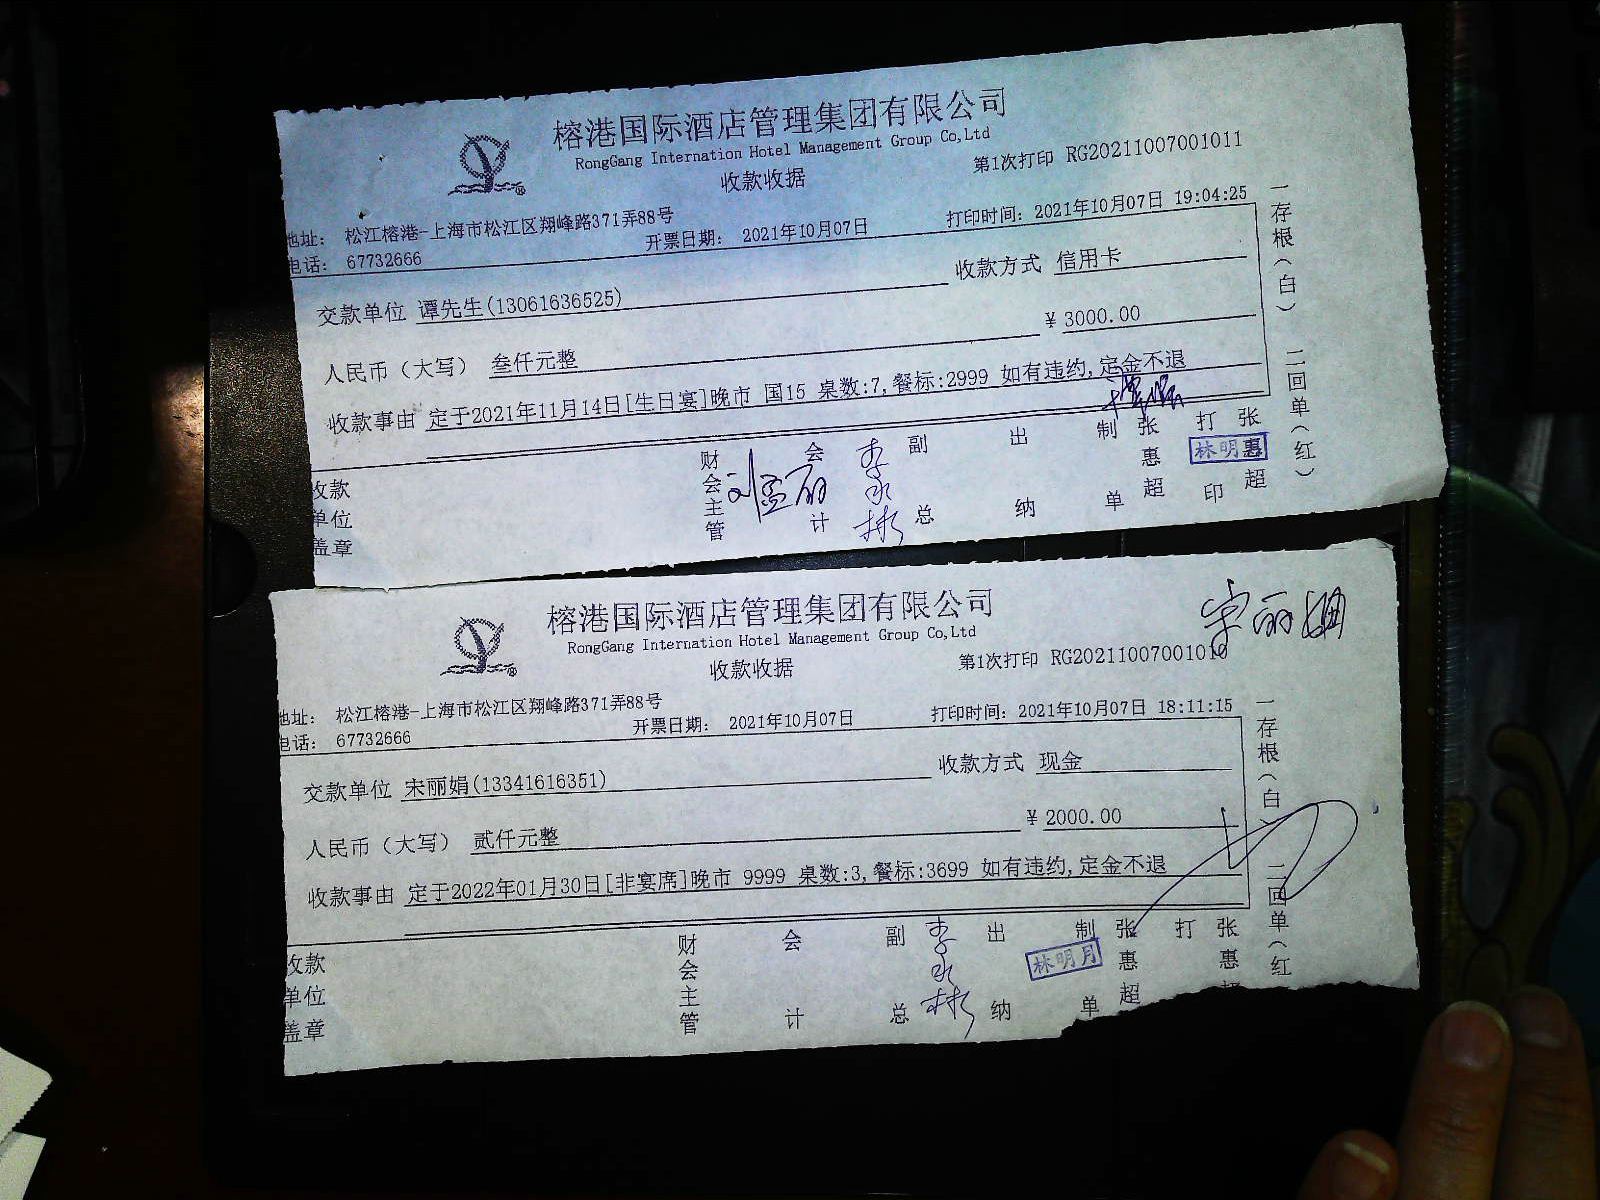 榕港国际酒店管理集团有限公司
RongGang Internation Hotel Management Group Co,Ltd
收款收据
第1次打印 RG20211007001011
地址： 松江榕港-上海市松江区翔峰路371弄88号
电话： 67732666
开票日期： 2021年10月07日
打印时间：2021年10月07日 19:04:25
交款单位 谭先生(13061636525)
收款方式 信用卡
人民币（大写） 叁仟元整
￥3000.00
收款事由 定于2021年11月14日[生日宴]晚市 国15 桌数:7,餐标:2999 如有违约,定金不退
收款单位盖章
财会主管
会计
李永彬
副总
出纳
制单
张惠超
打印
张惠超
林明
一存根（白） 二回单（红）
榕港国际酒店管理集团有限公司
RongGang Internation Hotel Management Group Co,Ltd
收款收据
宋丽娟
第1次打印 RG20211007001010
地址： 松江榕港-上海市松江区翔峰路371弄88号
电话： 67732666
开票日期： 2021年10月07日
打印时间：2021年10月07日 18:11:15
交款单位 宋丽娟(13341616351)
收款方式 现金
人民币（大写） 贰仟元整
￥2000.00
收款事由 定于2022年01月30日[非宴席]晚市 9999 桌数:3,餐标:3699 如有违约,定金不退
收款单位盖章
财会主管
会计
副总
李永彬
出纳
林明月
制单
张惠超
打
张惠超
一存根（白） 二回单（红